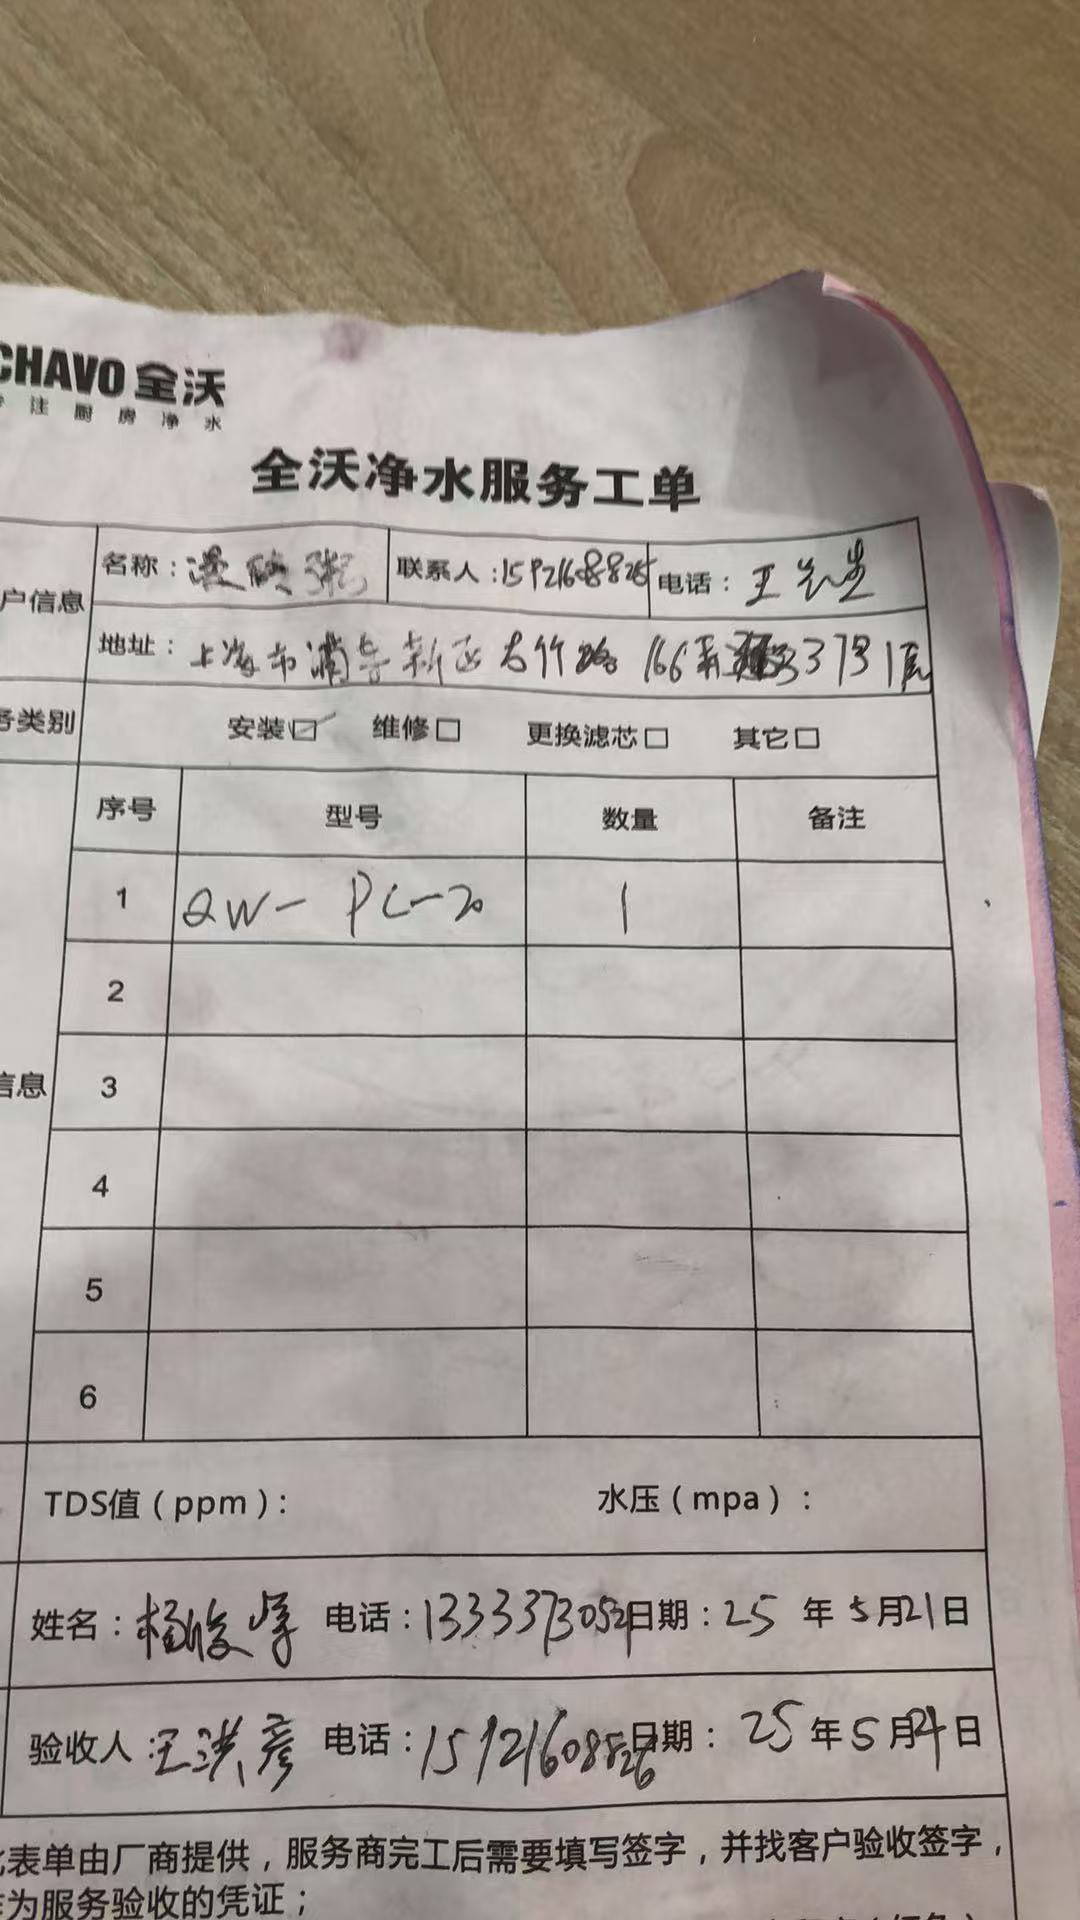 CHAVO 全沃
注厨房净水
全沃净水服务工单
户信息
名称：漫 粥 联系人：15921608825 电话：王先生
地址：上海市浦东新区古竹路 166弄 37号1层
务类别
安装☑ 维修□ 更换滤芯□ 其它□
序号 型号 数量 备注
1 QW-PC-20 1
2
信息
3
4
5
6
TDS值（ppm）： 水压（mpa）：
姓名：杨俊 电话： 日期：25 年 5 月 21 日
验收人：王洪彦 电话： 日期：25 年 5 月 日
表单由厂商提供，服务商完工后需要填写签字，并找客户验收签字，
为服务验收的凭证；